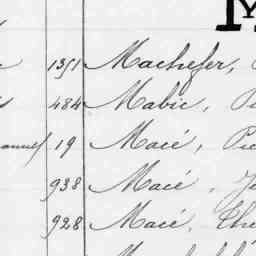 M
1351 Machefer,
484 Mabic,
19 Macé, Pie
938 Macé, Je
928 Macé, Thé